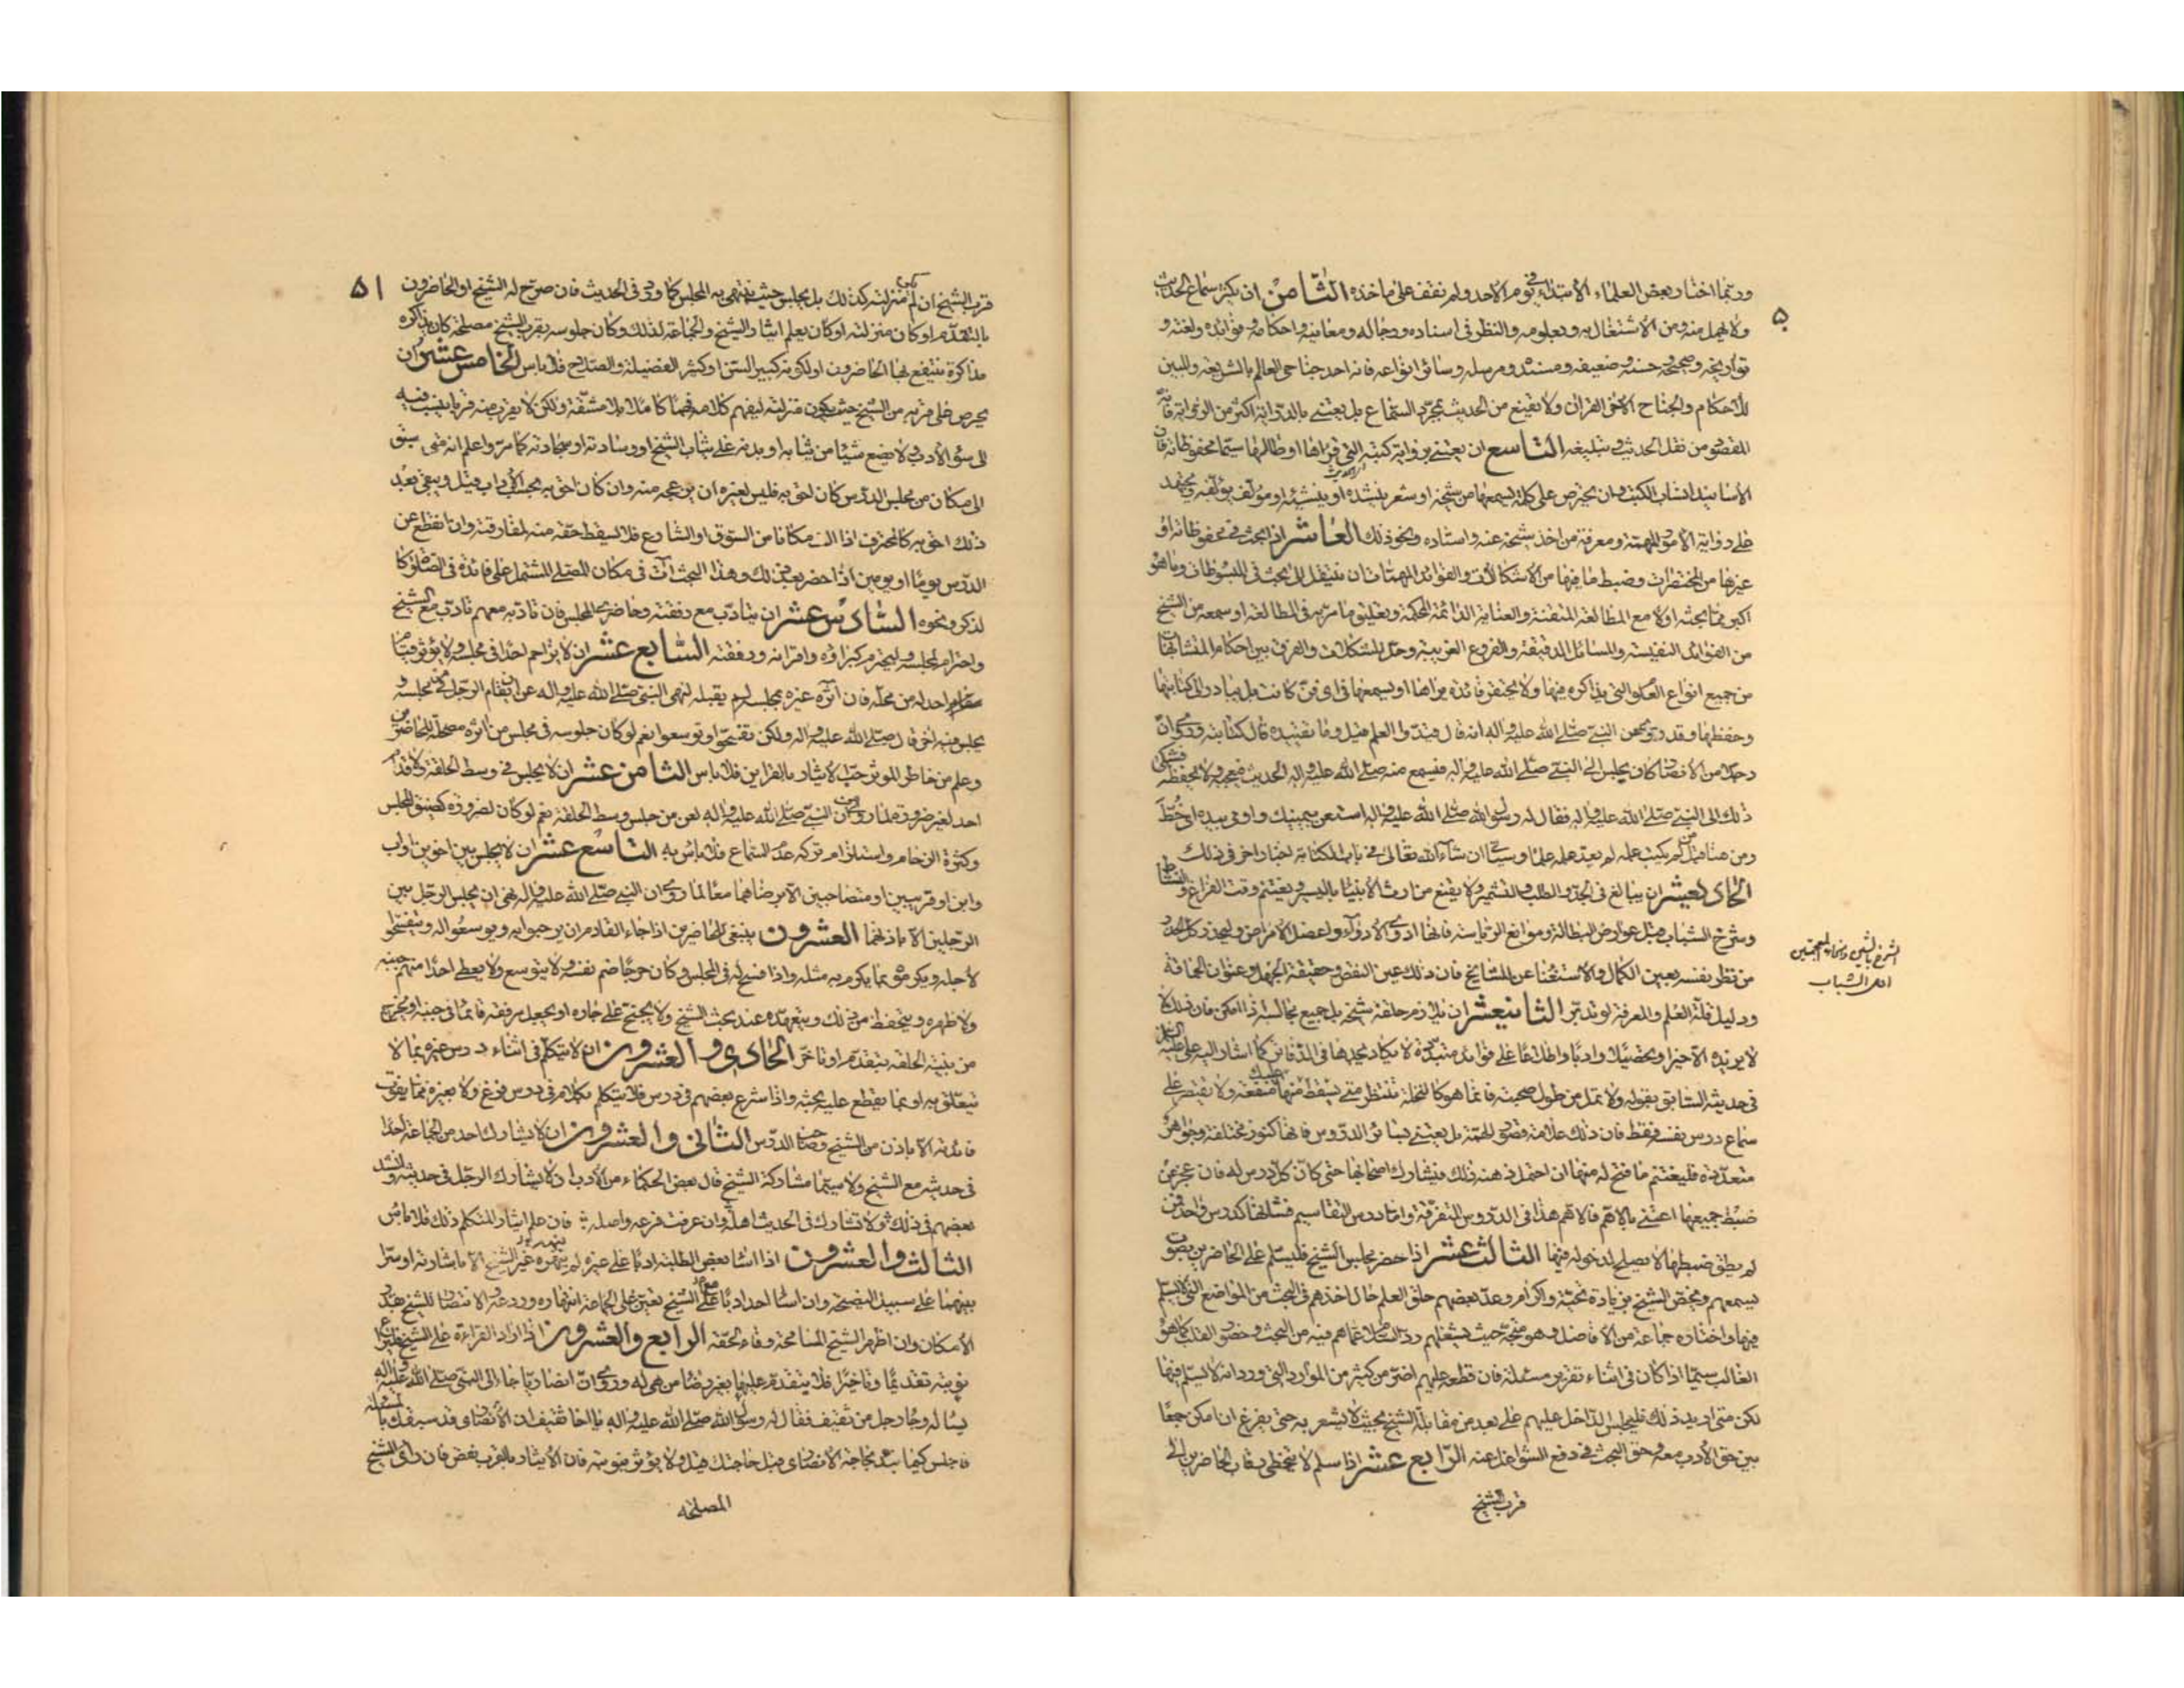 ۵۰
وربما اختار بعض العلماء الابتداء في يوم الاحد ولم نقف على ماخذه الثامن ان يبكر بسماع الحديث
ولا يهمل منه ومن الاشتغال به وبعلومه والنظر فى اسناده ورجاله ومعانيه واحكامه وفوائده ولغته و
تواريخه وصحيحه وحسنه وضعيفه ومسنده ومرسله وسائر انواعه فانه احد جناحى العالم بالشريعة والمبين
للاحكام والجناح الاخر القران ولا يقنع من الحديث بمجرد السماع بل يعتنى بالدراية اكثر من الرواية فانه
المقصود من نقل الحديث وتبليغه التاسع ان يعتنى برواية كتبه التى قراها او طالعها سيما محفوظاته فان
الاسانيد انساب الكتب وان يحترص على كلمة يسمعها من شيخه او شعر ينشده او ينشئه او مؤلف يؤلفه ويجتهد
على رواية الامور المهمة ومعرفة من اخذ شيخه عنه واستاده ونحو ذلك العاشر اذا بحث فى محفوظاته او
غيرها من المختصرات وضبط ما فيها من الاشكالات والفوائد المهمات ان ينتقل الى بحث فى المبسوطات وما هو
اكبر مما بحثه اولا مع المطالعة المتقنة والعناية الدائمة المحكمة وتعليق ما مر به فى المطالعة او سمعه من الشيخ
من الفوائد النفيسة والمسائل الدقيقة والفروع الغريبة وحل المشكلات والفرق بين احكام المتشابهات
من جميع انواع العلوم التى يذاكره فيها ولا يحتقر فائدة يراها او يسمعها فى اى فن كانت بل يبادر الى كتابتها
وحفظها وقد روى عن النبى صلى الله عليه واله انه قال قيدوا العلم قيل وما تقييده قال كتابته وروى ان
رجلا من الانصار كان يجلس الى النبى صلى الله عليه واله فيسمع منه صلى الله عليه واله الحديث فيعجبه ولا يحفظه فشكى
ذلك الى النبى صلى الله عليه واله فقال له رسول الله صلى الله عليه واله استعن بيمينك واومى بيده اى خط
ومن هنا قيل من لم يكتب علمه لم يعد علمه علما وسياتى ان شاء الله تعالى فى باب الكتابة اخبار اخر فى ذلك
الحاديعشر ان يبالغ فى الجد والطلب والتشمير ولا يقنع من ارث الانبياء باليسير ويغتنم وقت الفراغ والنشاط
وشرخ الشباب قبل عوارض البطالة وموانع الرياسة فانها ادوى الادواء واعضل الامراض وليحذر كل الحذر
من نظر نفسه بعين الكمال والاستغناء عن المشايخ فان ذلك عين النقص وحقيقة الجهل وعنوان الحماقة
ودليل قلة العلم والمعرفة لو تدبر الثانيعشر ان يلازم حلقة شيخه بل جميع مجالسه اذا امكن فان ذلك لا
لا يزيده الا خيرا وتحصيلا وادبا واطلاعا على فوائد متبددة لا يكاد يجدها فى الدفاتر كما اشار اليه على عليه السلم
فى حديثه السابق بقوله ولا تمل من طول صحبته فانما هو كالنخلة تنتظر متى يسقط عليك منها منفعة ولا يقتصر على
سماع درس نفسه فقط فان ذلك علامة قصور الهمة بل يعتنى بسائر الدروس فانها كنوز مختلفة وجواهر
متعددة فليغتنم ما فتح له منها ان احتمل ذهنه ذلك فيشارك اصحابها حتى كان كل درس له فان عجز عن
ضبط جميعها اعتنى بالاهم فالاهم هذا فى الدروس المتفرقة واما درس التقاسيم فشانها كدرس واحد فمن
لم يطق ضبطها لا يصلح لدخوله فيها الثالث عشر اذا حضر مجلس الشيخ فليسلم على الحاضرين بصوت
يسمعهم ويخص الشيخ بزيادة تحية واكرام وعد بعضهم حلق العلم حال اخذهم فى البحث من المواضع التى لا يسلم
فيها واختاره جماعة من الافاضل وهو متجه حيث يشغلهم رد السلام عما هم فيه من البحث وحضور القلب كما هو
الغالب سيما اذا كان فى اثناء تقرير مسئلة فان قطعه عليهم اضر من كثير من الموارد التى ورد انه لا يسلم فيها
لكن متى اريد ذلك فليجلس الداخل عليهم على بعد من مقابلة الشيخ بحيث لا يشعر به حتى يفرغ ان امكن جمعا
بين حق الادب معه وحق البحث فى دفع الشواغل عنه الرابع عشر اذا سلم لا يتخطى رقاب الحاضرين الى
قرب الشيخ
اى اول الشباب
۵۱
قرب الشيخ ان لم يكن منزلته كذلك بل يجلس حيث ينتهى به المجلس كما ورد فى الحديث فان صرح له الشيخ او الحاضرون
بالتقدم او كان منزلته او كان يعلم ايثار الشيخ والجماعة لذلك وكان جلوسه بقرب الشيخ مصلحة كان يذاكره
مذاكرة ينتفع بها الحاضرون او لكونه كبير السن او كثير الفضيلة والصلاح فلا باس الخامس عشر ان
يحرص على قربه من الشيخ حيث يكون منزلته ليفهم كلامه فهما كاملا بلا مشقة ولكن لا يقرب منه قربا ينسب فيه
الى سوء الادب ولا يضع شيئا من ثيابه او بدنه على ثياب الشيخ او وسادته او سجادته كما مر واعلم انه متى سبق
الى مكان من مجلس الدرس كان احق به فليس لغيره ان يزعجه منه وان كان احق به بحسب الاداب قيل ويبقى بعد
ذلك احق به كالمحترف اذا الف مكانا من السوق او الشارع فلا يسقط حقه منه بمفارقته وان انقطع عن
الدرس يوما او يومين اذا حضر بعد ذلك وهذا البحث آت فى مكان المصلى المشتمل على فائدة فى الصلوة كا
لذكر ونحوه السادس عشر ان يتادب مع رفقته وحاضرى المجلس فان تادبه معهم تادب مع الشيخ
واحترام لمجلسه وليحترم كبراؤه واقرانه ورفقته السابع عشر ان لا يزاحم احدا فى مجلسه ولا يؤثر قيام
احد له من محله فان آثره غيره بمجلسه لم يقبله لنهى النبى صلى الله عليه واله عن ان يقام الرجل من مجلسه و
يجلس فيه اخر قال صلى الله عليه واله ولكن تفسحوا وتوسعوا نعم لو كان جلوسه فى مجلس من آثره مصلحة للحاضرين
وعلم من خاطر الموثر حب الايثار بالقراين فلا باس الثامن عشر ان لا يجلس فى وسط الحلقة ولا قدام
احد لغير ضرورة لما روى من ان النبى صلى الله عليه واله لعن من جلس وسط الحلقة نعم لو كان لضرورة كضيق المجلس
وكثرة الزحام واستلزام تركه عدم السماع فلا باس به التاسع عشر ان لا يجلس بين اخوين او اب
وابن او قريبين او متصاحبين الا برضاهما معا لما روى ان النبى صلى الله عليه واله نهى ان يجلس الرجل بين
الرجلين الا باذنهما العشرون ينبغى للحاضرين اذا جاء القادم ان يرحبوا به ويوسعوا له ويتفسحوا
لاجله ويكرموه بما يكرم به مثله واذا فسح له فى المجلس وكان حرجا ضم نفسه ولا يتوسع ولا يعطى احدا منهم جنبه
ولا ظهره ويتحفظ من ذلك ويتعهده عند بحث الشيخ ولا يجنح على جاره او يجعل مرفقه قائما فى جنبه او يخرج
من بنية الحلقة بتقدم او تاخر الحادى والعشرون ان لا يتكلم فى اثناء درس غيره بما لا
يتعلق به او بما يقطع عليه بحثه واذا شرع بعضهم فى درس فلا يتكلم بكلام فى درس فرغ ولا بغيره مما يفوت
فائدته الا باذن من الشيخ وصاحب الدرس الثانى والعشرون ان لا يشارك احد من الجماعة احدا
فى حديثه مع الشيخ ولا سيما مشاركة الشيخ قال بعض الحكماء من الادب ان لا يشارك الرجل فى حديثه وانشد
بعضهم فى ذلك ولا تشارك فى الحديث اهله وان عرفت فرعه واصله فان علم ايثار المتكلم ذلك فلا باس
الثالث والعشرون اذا اساء بعض الطلبة ادبا على غيره لم ينهره غير الشيخ الا باشارته او سرا
بينهما على سبيل النصيحة وان اساء احد ادبا على الشيخ تعين على الجماعة انتهاره وردعه والانتصار للشيخ بقدر
الامكان وان اظهر الشيخ المسامحة وفاء لحقه الرابع والعشرون اذا اراد القراءة على الشيخ فليراع
نوبته تقديما وتاخيرا فلا يتقدم عليها بغير رضا من هى له وروى ان انصاريا جاء الى النبى صلى الله عليه واله
يساله وجاء رجل من ثقيف فقال له رسول الله صلى الله عليه واله يا اخا ثقيف ان الانصارى قد سبقك بالمسئلة
فاجلس كيما نبدء بحاجة الانصارى قبل حاجتك قيل ولا يؤثر بنوبته فان الايثار بالقرب نقص فان راى الشيخ
المصلحة